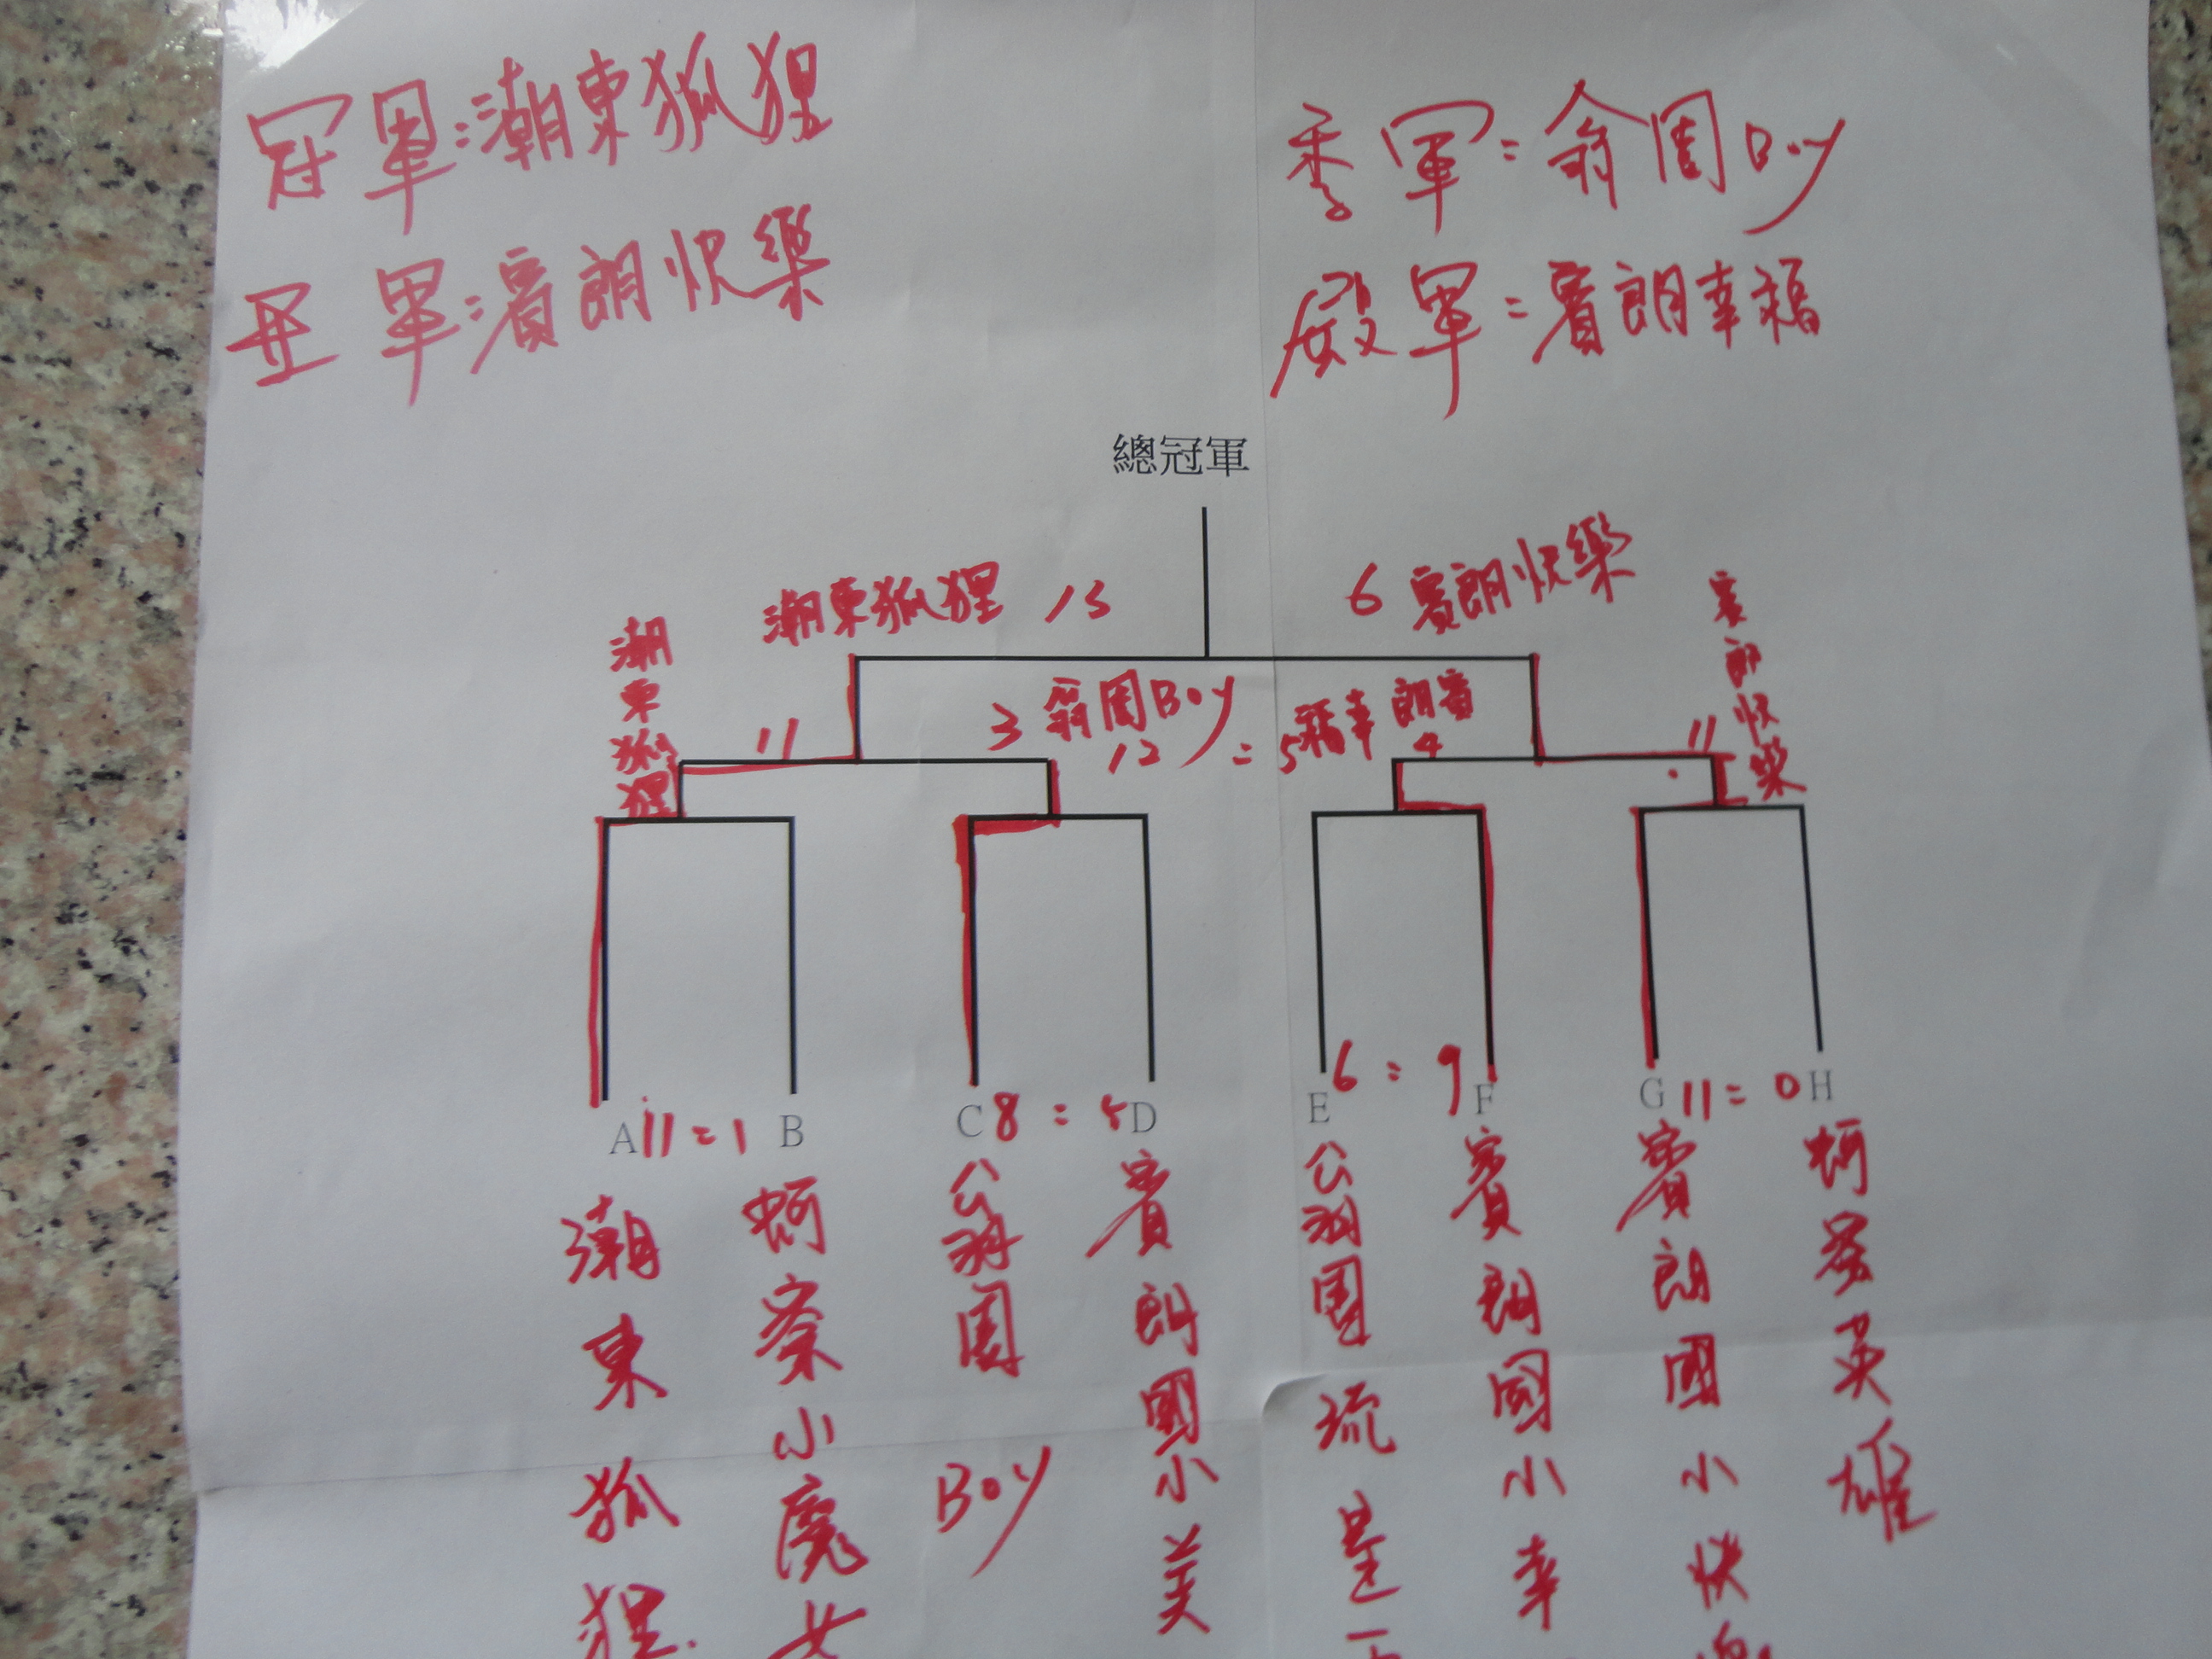 冠軍:潮東狐狸
亞軍:賓朗快樂
季軍:翁園Boy
殿軍:賓朗幸福
總冠軍
潮東狐狸 13
6 賓朗快樂
潮東狐狸
賓朗快樂
11
3
翁園Boy
12 = 5
福幸朗賓
4
11
A 11=1 B
C 8:5 D
E 6:9 F
G 11=0 H
潮東狐狸
蚵寮小魔女
公翁園Boy
賓朗國小美
公翁園流星
賓朗國小幸
賓朗國小快
蚵寮英雄